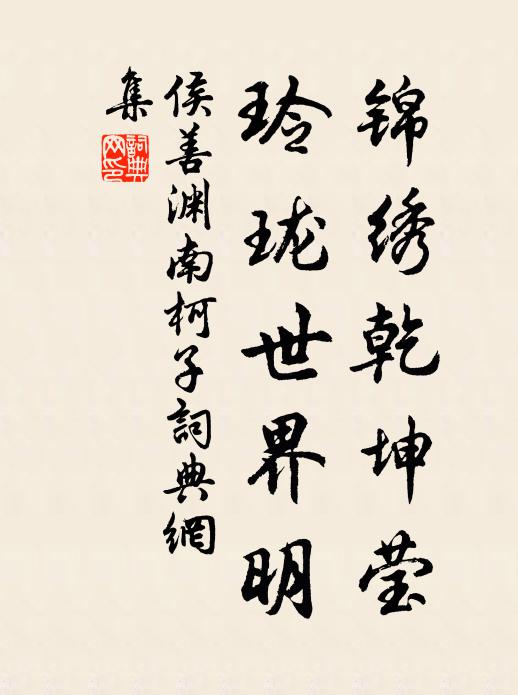 锦绣乾坤莹
玲珑世界明
侯善渊南柯子詞典網
集
詞典網印